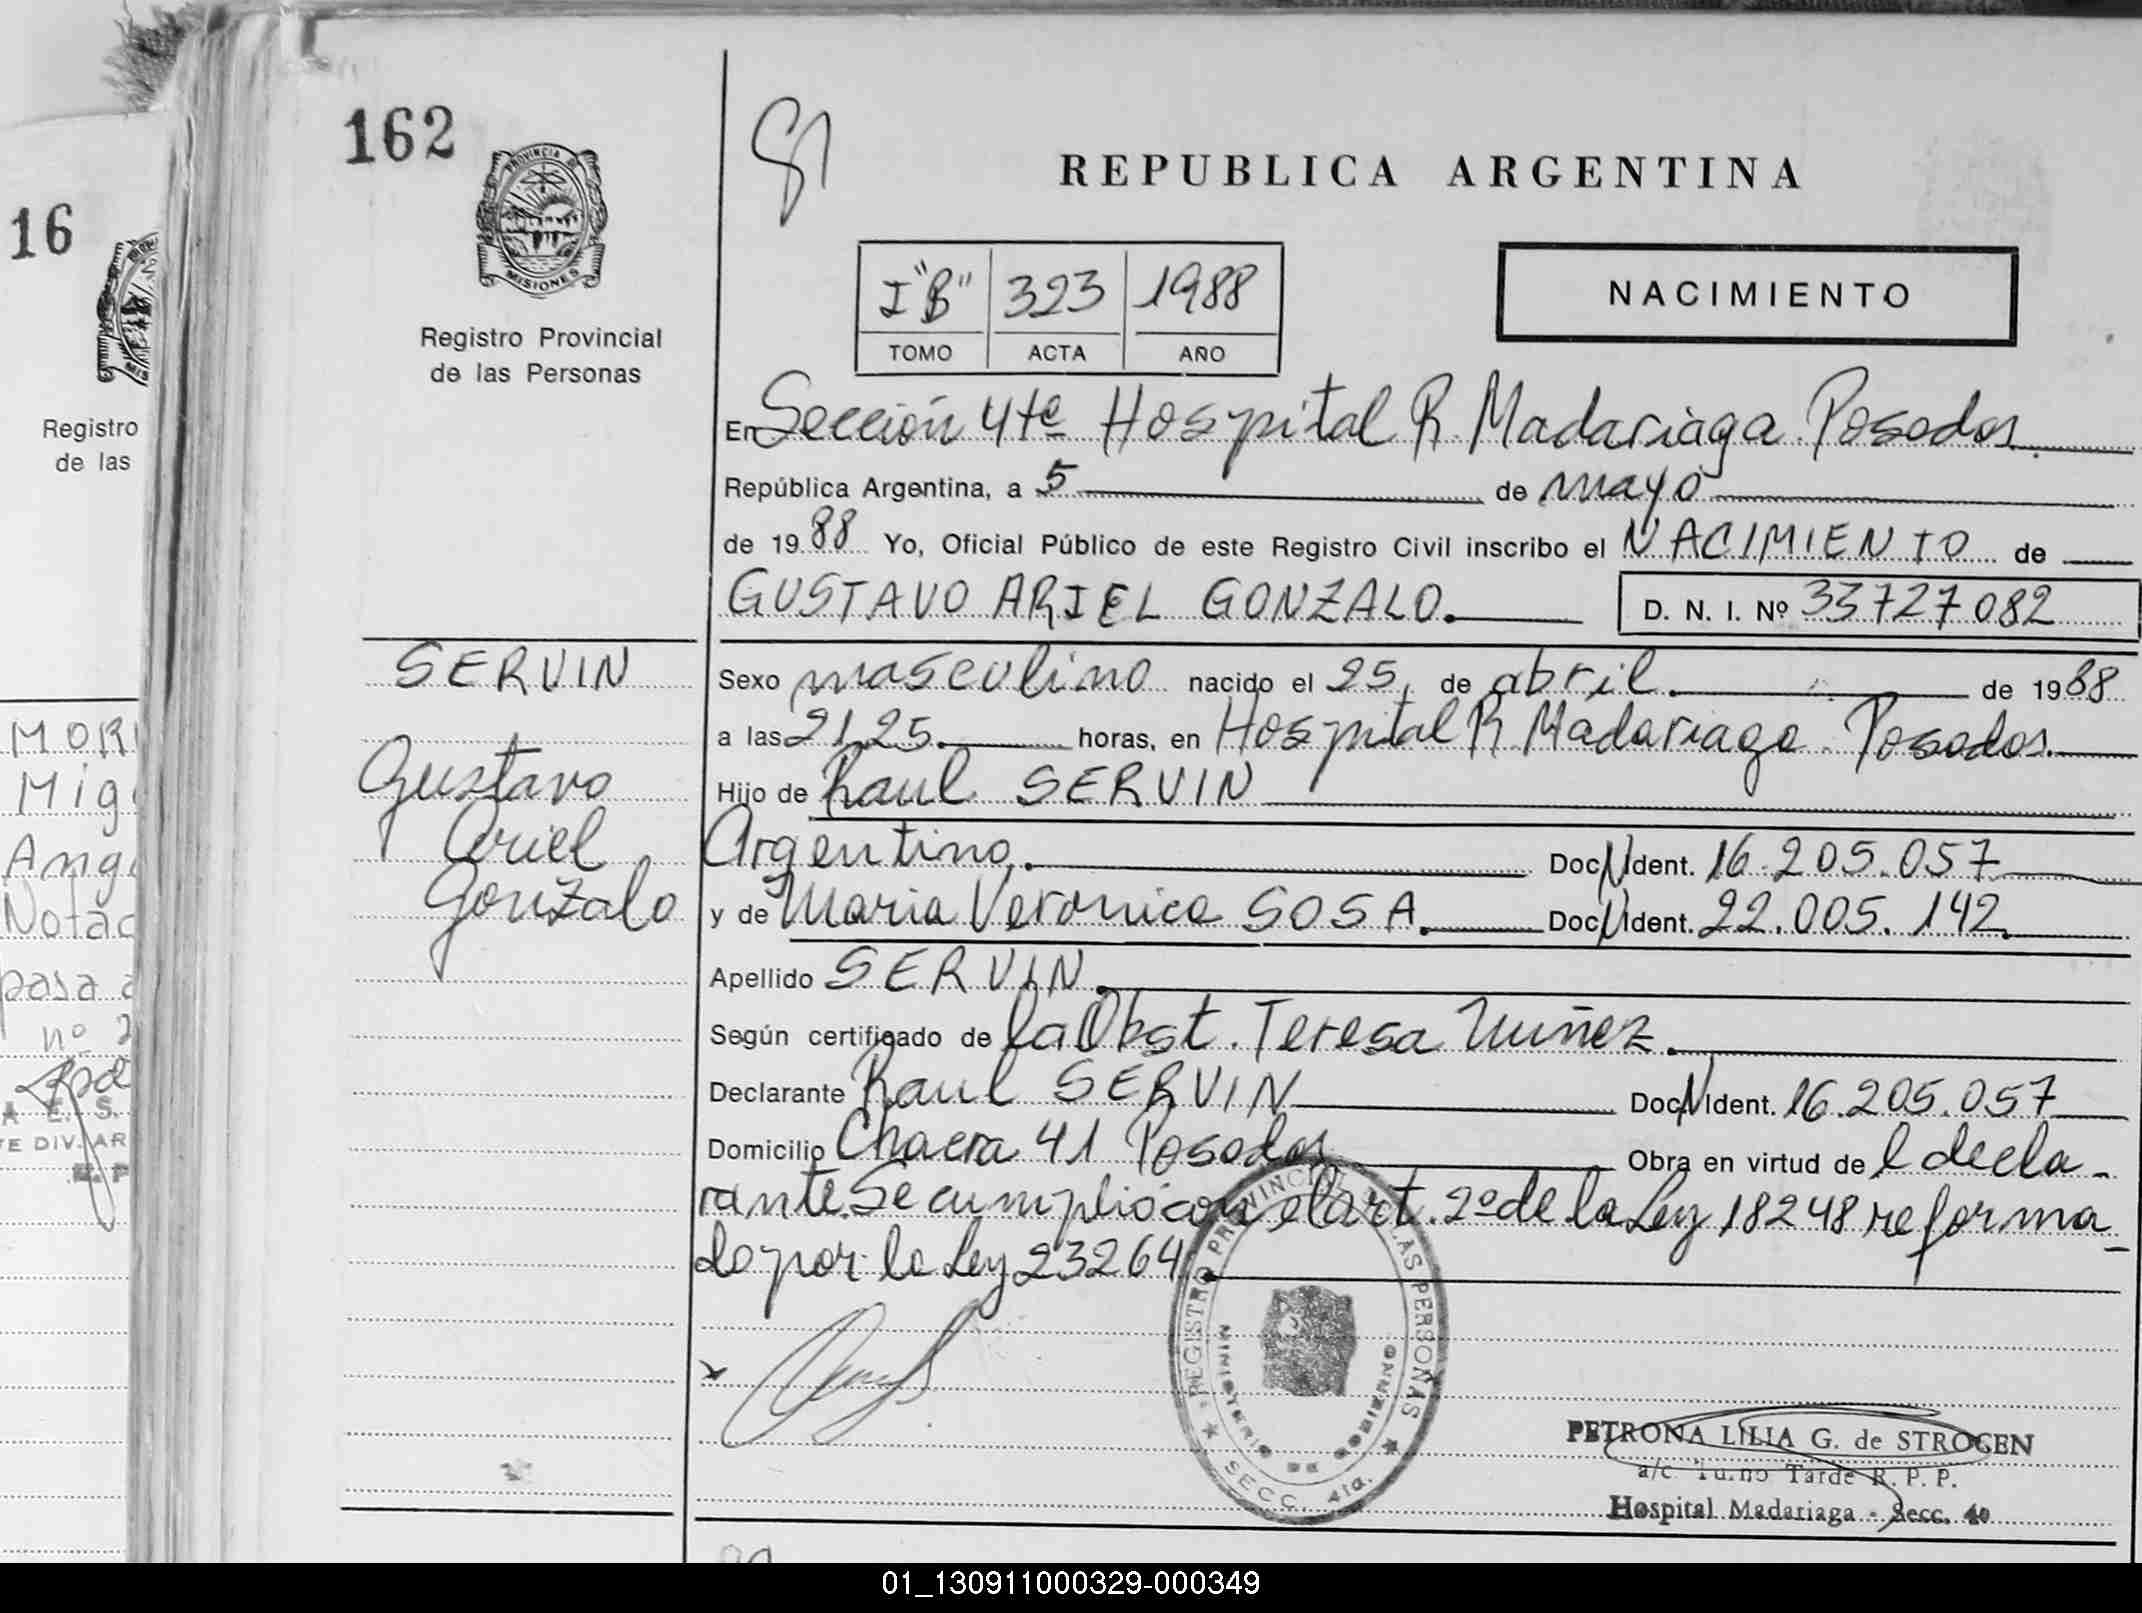 162
PROVINCIA DE
MISIONES
Registro Provincial
de las Personas
REPUBLICA ARGENTINA
I "B" 323 1988
TOMO ACTA AÑO
NACIMIENTO
En Sección 4ta Hospital R Madariaga Posadas
República Argentina, a 5 de mayo
de 1988 Yo, Oficial Público de este Registro Civil inscribo el NACIMIENTO de
GUSTAVO ARIEL GONZALO. D. N. I. Nº 33727082
Sexo masculino nacido el 25 de abril. de 1988
a las 21,25. horas, en Hospital R Madariaga Posadas.
Hijo de Raul SERVIN
Argentino. Doc N Ident. 16.205.057
y de Maria Veronica SOSA. Doc N Ident. 22.005.142.
Apellido SERVIN.
Según certificado de la Obst. Teresa Nuñez.
Declarante Raul SERVIN Doc N Ident. 16.205.057
Domicilio Chacra 41 Posadas Obra en virtud de l decla-
rante. Se cumplió con el art. 2º de la Ley 18248 reforma_
do por la Ley 23264.
SERVIN
Gustavo
Ariel
Gonzalo
REGISTRO PROVINCIAL DE LAS PERSONAS
MINISTERIO DE GOBIERNO
SECC. 4ta.
PETRONA LILIA G. de STROGEN
a/c. Turno Tarde R. P. P.
Hospital Madariaga - Secc. 4º
16
Registro
de las
MOR
Mig
Ang
Notac
pasa a
nº 2
E. S.
DIV. AR
01_130911000329-000349